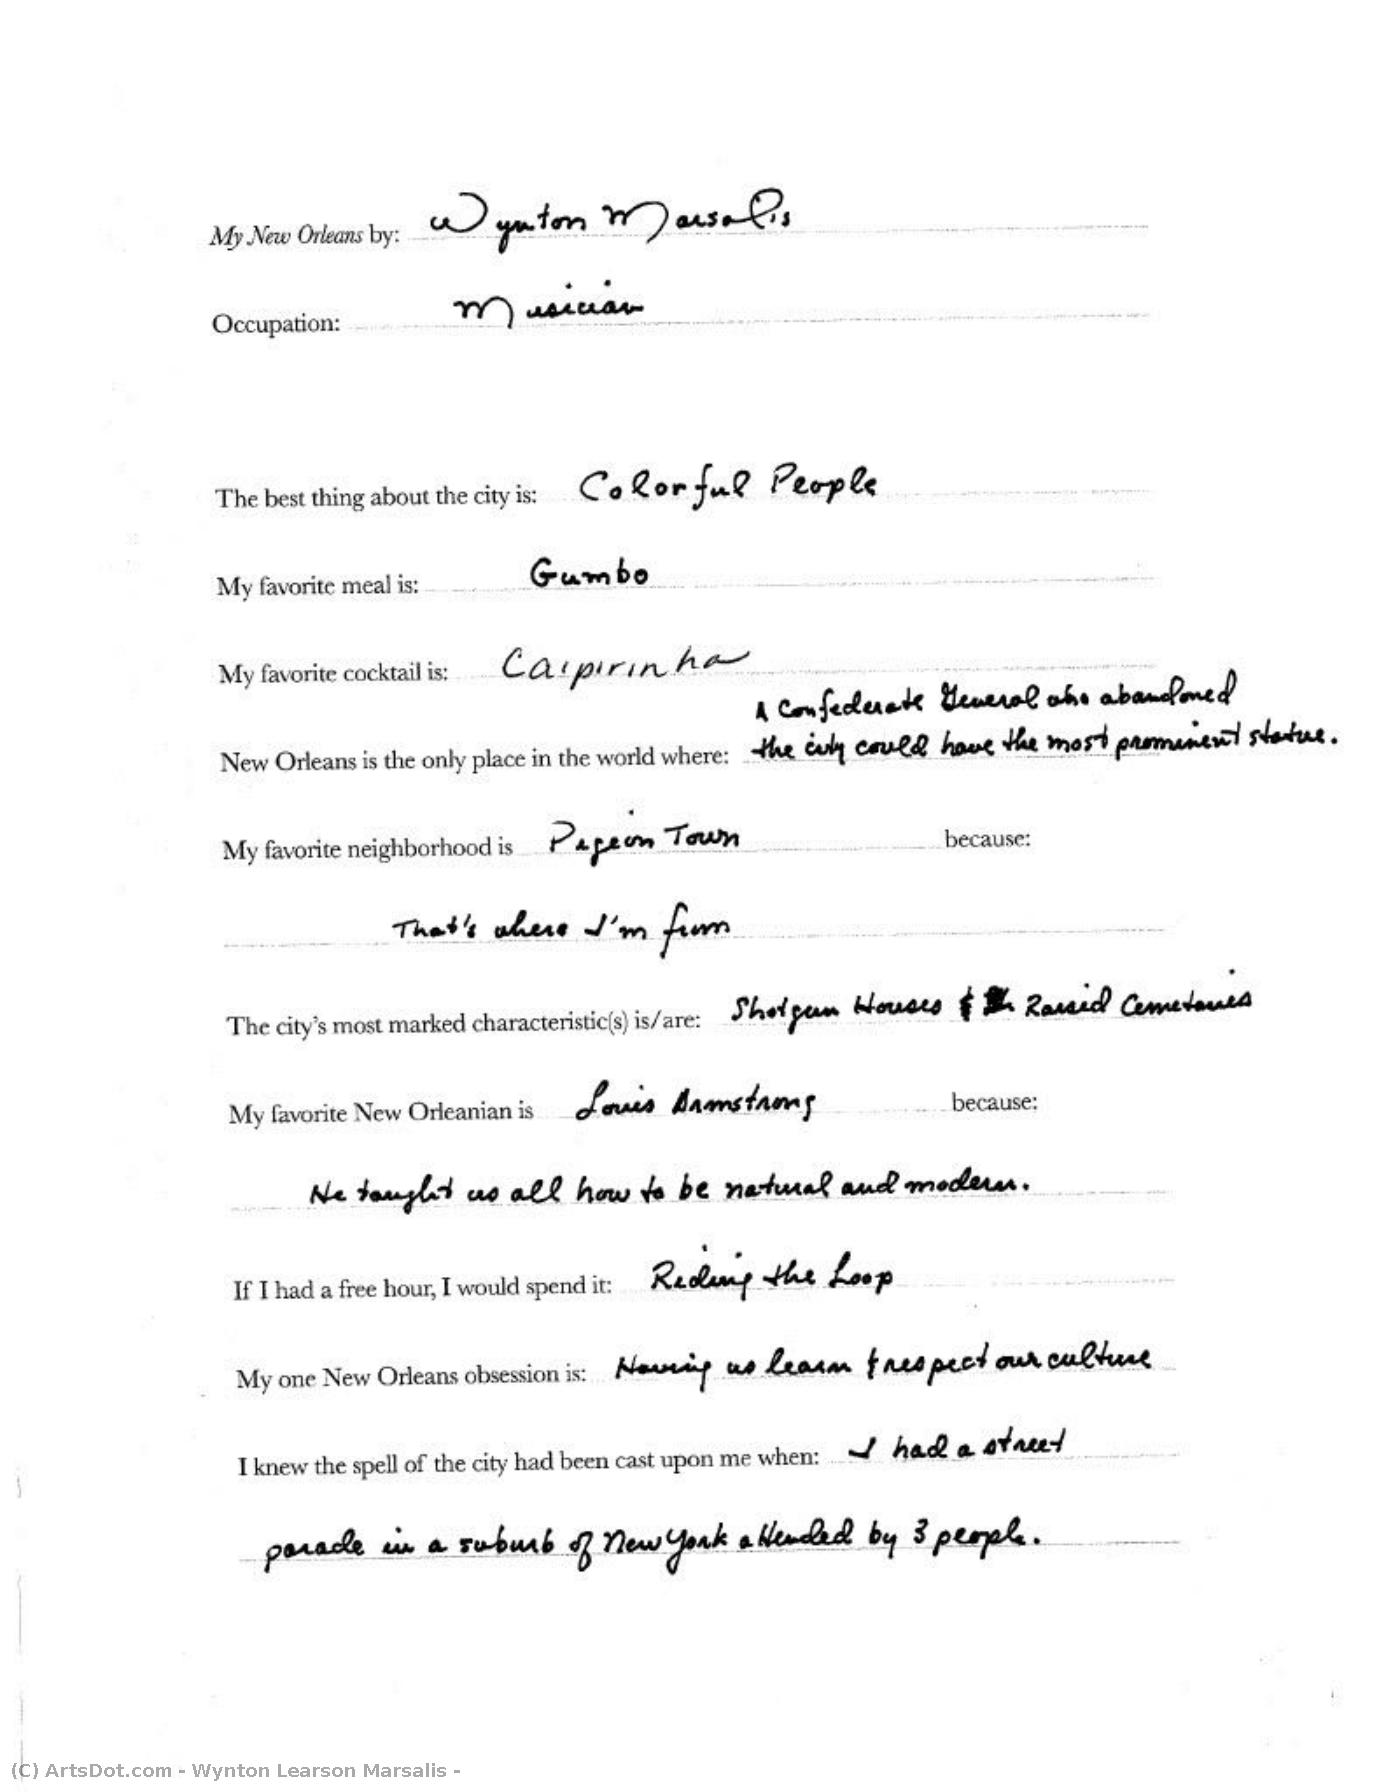 My New Orleans by: Wynton Marsalis
Occupation: Musician
The best thing about the city is: Colorful People
My favorite meal is: Gumbo
My favorite cocktail is: Caipirinha
A Confederate General who abandoned
New Orleans is the only place in the world where: the city could have the most prominent statue.
My favorite neighborhood is Pigeon Town because:
That's where I'm from
The city's most marked characteristic(s) is/are: Shotgun Houses & Raised Cemetaries
My favorite New Orleanian is Louis Armstrong because:
He taught us all how to be natural and modern.
If I had a free hour, I would spend it: Riding the Loop
My one New Orleans obsession is: Having us learn & respect our culture
I knew the spell of the city had been cast upon me when: I had a street
parade in a suburb of New York attended by 3 people.
(C) ArtsDot.com - Wynton Learson Marsalis -